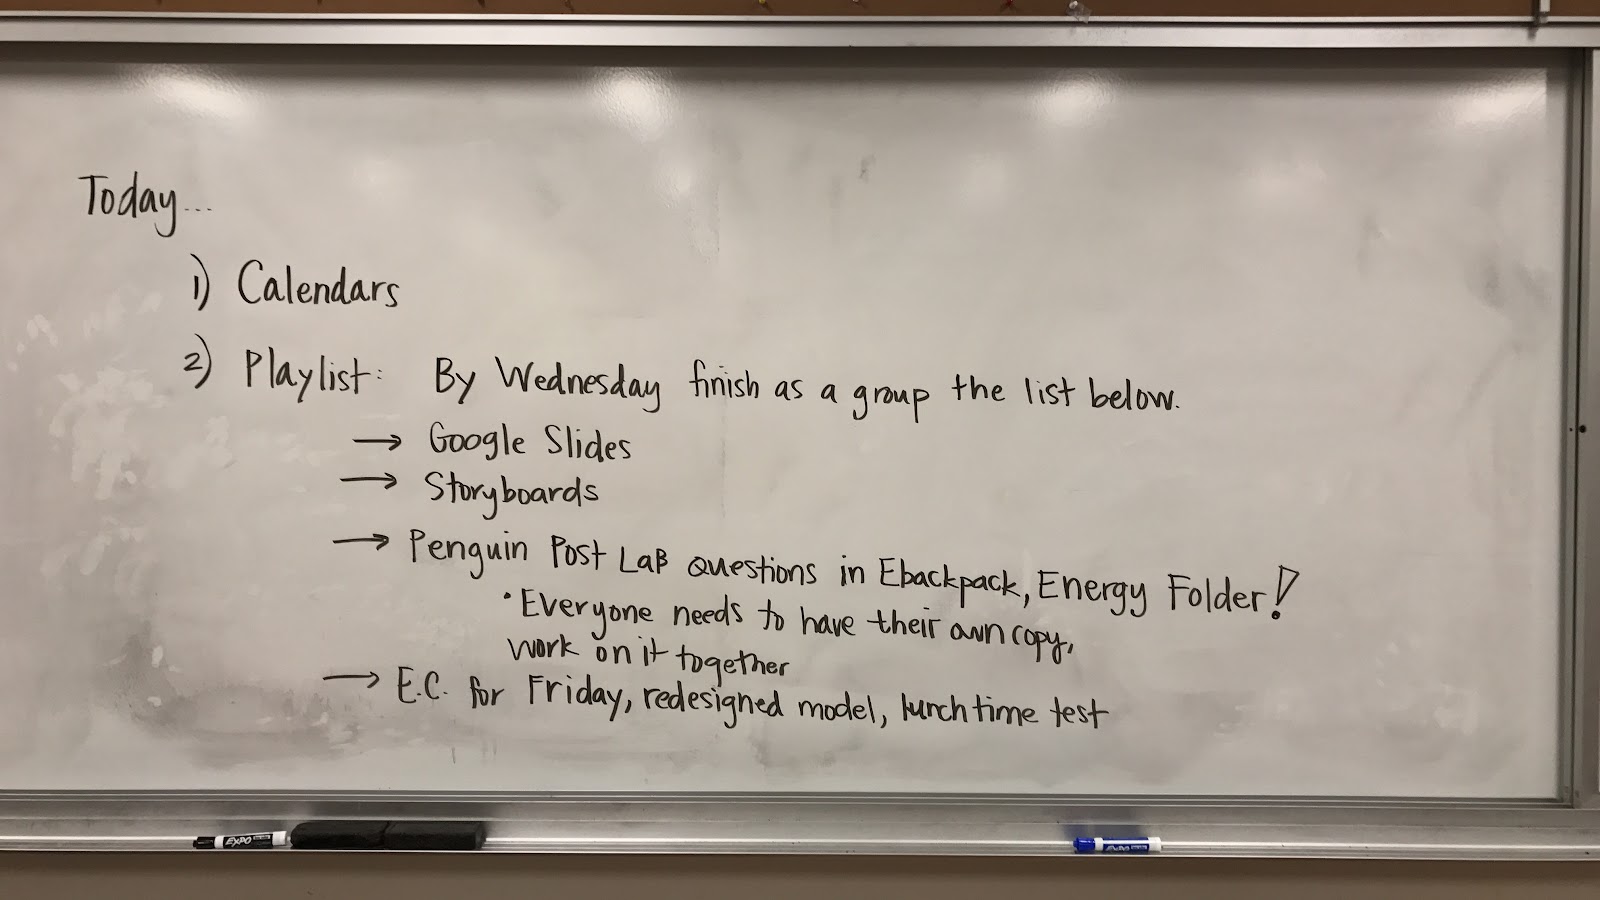 Today...
1) Calendars
2) Playlist: By Wednesday finish as a group the list below.
→ Google Slides
→ Storyboards
→ Penguin Post LaB Questions in Ebackpack, Energy Folder!
• Everyone needs to have their own copy,
work on it together
→ E.C. for Friday, redesigned model, lunch time test
EXPO
EXPO